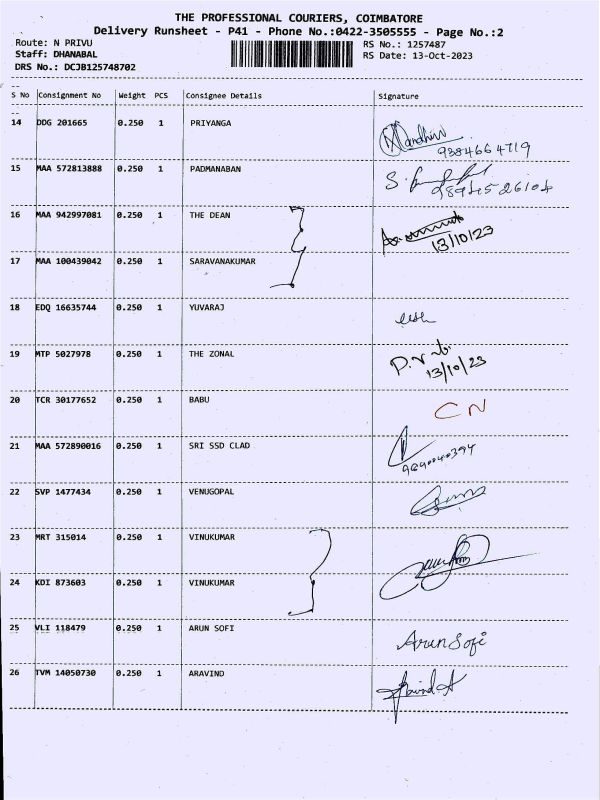 THE PROFESSIONAL COURIERS, COIMBATORE
Delivery Runsheet - P41 - Phone No.:0422-3505555 - Page No.:2
Route: N PRIVU RS No.: 1257487
Staff: DHANABAL RS Date: 13-Oct-2023
DRS No.: DCJB125748702
S No Consignment No Weight PCS Consignee Details Signature
14 DDG 201665 0.250 1 PRIYANGA
9384664719
15 MAA 572813888 0.250 1 PADMANABAN
9894526104
16 MAA 942997081 0.250 1 THE DEAN
13/10/23
17 MAA 100439042 0.250 1 SARAVANAKUMAR
18 EDQ 16635744 0.250 1 YUVARAJ
19 MTP 5027978 0.250 1 THE ZONAL
13/10/23
20 TCR 30177652 0.250 1 BABU CN
21 MAA 572890016 0.250 1 SRI SSD CLAD
22 SVP 1477434 0.250 1 VENUGOPAL
23 MRT 315014 0.250 1 VINUKUMAR
24 KDI 873603 0.250 1 VINUKUMAR
25 VLI 118479 0.250 1 ARUN SOFI Arun Sofi
26 TVM 14050730 0.250 1 ARAVIND